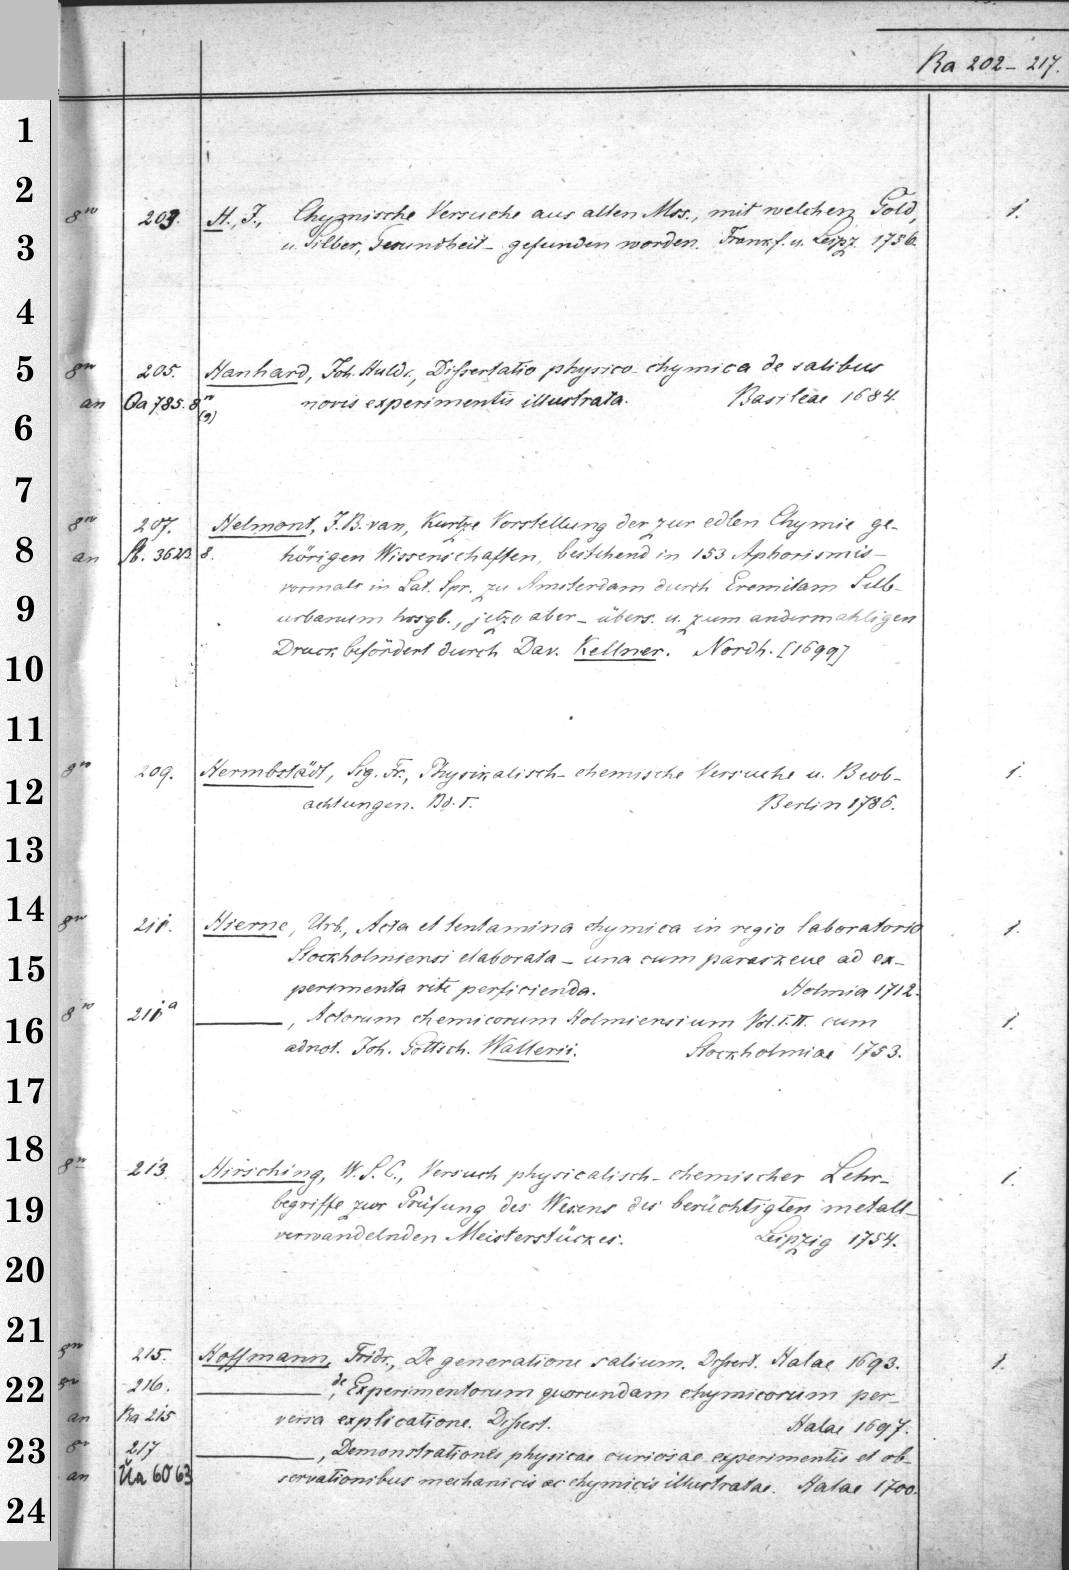 Ra 202-217.
1
2
8vo 203. H., J., Chymische Versuche aus alten Mss., mit welchen Gold, 1.
3
u. Silber, Gesundheit - gefunden worden. Frankf. u. Leipz. 1756.
4
5
8vo 205. Hanhard, Joh. Huldr., Dissertatio physico-chymica de salibus
an Qa 785. 8o (9) novis experimentis illustrata. Basileae 1684.
6
7
8vo 207. Helmont, J. B. van, Kurtze Vorstellung der zur edlen Chymie ge-
8
an 3623 8. hörigen Wissenschaften, bestehend in 153 Aphorismis -
vormals in Lat. Spr. zu Amsterdam durch Eremitam Sub-
9
urbanum hrsgb., jetzo aber - übers. u. zum andermahligen
10
Druck befördert durch Dav. Kellner. Nordh. [1699]
11
8vo 209. Hermbstädt, Sig. Fr., Physikalisch-chemische Versuche u. Beob- 1.
12
achtungen. Bd. I. Berlin 1786.
13
14
8vo 211. Hierne, Urb., Acta et tentamina chymica in regio laboratorio 1.
15
Stockholmiensi elaborata - una cum paraskeue ad ex-
perimenta rite perficienda. Holmia 1712.
16
8vo 211a ———, Actorum chemicorum Holmiensium Vol. I. II. cum 1.
adnot. Joh. Gottsch. Wallerii. Stockholmiae 1753.
17
18
8vo 213 Hirsching, W. S. C., Versuch physicalisch-chemischer Lehr- 1.
19
begriffe zur Prüfung des Wesens des berüchtigten metall-
verwandelnden Meisterstückes. Leipzig 1754.
20
21
8vo 215. Hoffmann, Fridr., De generatione salium. Dissert. Halae 1693. 1.
22
8vo 216. ———, de Experimentorum quorundam chymicorum per-
an Ra 215 versa explicatione. Dissert. Halae 1697.
23
8o 217 ———, Demonstrationes physicae curiosae experimentis et ob-
an Ua 6063 servationibus mechanicis ac chymicis illustratae. Halae 1700.
24